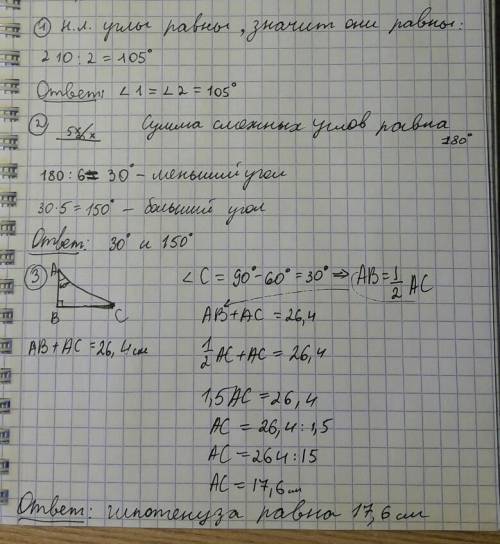 ① н.л. углы равны, значит они равны:
210 : 2 = 105°
Ответ: ∠1 = ∠2 = 105°
② 5x/x Сумма смежных углов равна 180°
180 : 6 = 30° – меньший угол
30·5 = 150° – больший угол
Ответ: 30° и 150°
③ A B C
AB + AC = 26,4 см
∠C = 90° - 60° = 30° ⇒ AB = 1/2 AC
AB + AC = 26,4
1/2 AC + AC = 26,4
1,5 AC = 26,4
AC = 26,4 : 1,5
AC = 264 : 15
AC = 17,6 см
Ответ: гипотенуза равна 17,6 см